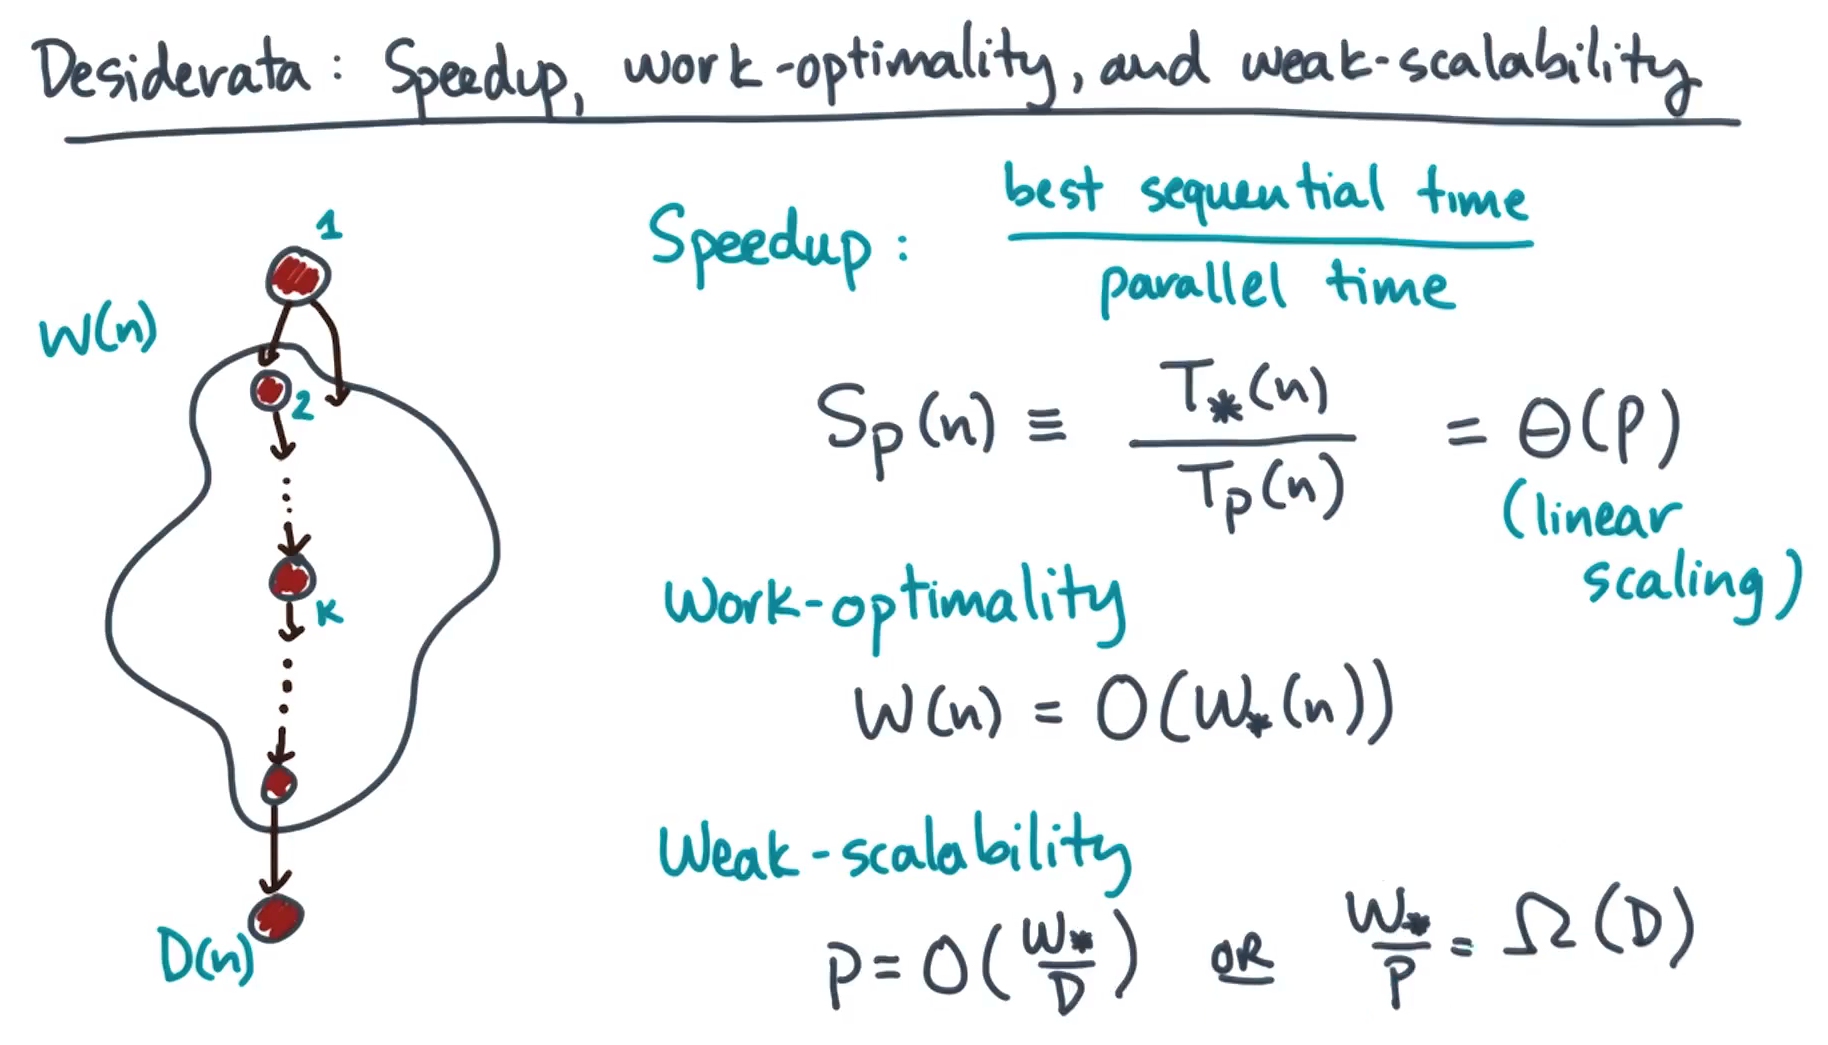 Desiderata: Speedup, work-optimality, and weak-scalability
1
W(n)
2
K
D(n)
Speedup: best sequential time
parallel time
Sp(n) ≡ T*(n) / Tp(n) = Θ(P)
(linear
scaling)
Work-optimality
W(n) = O(W*(n))
Weak-scalability
P = O(W*/D) OR W*/P = Ω(D)